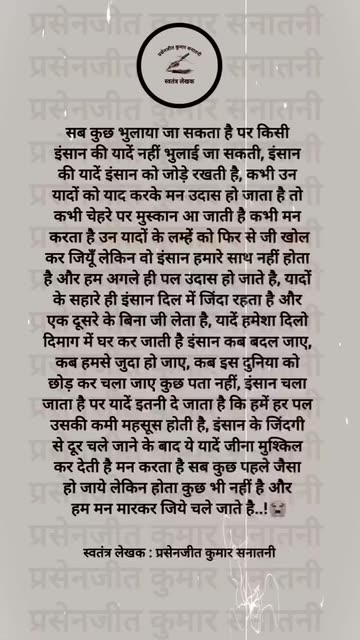 प्रसेनजीत कुमार सनातनी
स्वतंत्र लेखक
सब कुछ भुलाया जा सकता है पर किसी
इंसान की यादें नहीं भुलाई जा सकती, इंसान
की यादें इंसान को जोड़े रखती है, कभी उन
यादों को याद करके मन उदास हो जाता है तो
कभी चेहरे पर मुस्कान आ जाती है कभी मन
करता है उन यादों के लम्हें को फिर से जी खोल
कर जियूँ लेकिन वो इंसान हमारे साथ नहीं होता
है और हम अगले ही पल उदास हो जाते है, यादों
के सहारे ही इंसान दिल में जिंदा रहता है और
एक दूसरे के बिना जी लेता है, यादें हमेशा दिलो
दिमाग में घर कर जाती है इंसान कब बदल जाए,
कब हमसे जुदा हो जाए, कब इस दुनिया को
छोड़ कर चला जाए कुछ पता नहीं, इंसान चला
जाता है पर यादें इतनी दे जाता है कि हमें हर पल
उसकी कमी महसूस होती है, इंसान के जिंदगी
से दूर चले जाने के बाद ये यादें जीना मुश्किल
कर देती है मन करता है सब कुछ पहले जैसा
हो जाये लेकिन होता कुछ भी नहीं है और
हम मन मारकर जिये चले जाते है..!😭
स्वतंत्र लेखक : प्रसेनजीत कुमार सनातनी
प्रसेनजीत कुमार सनातनी